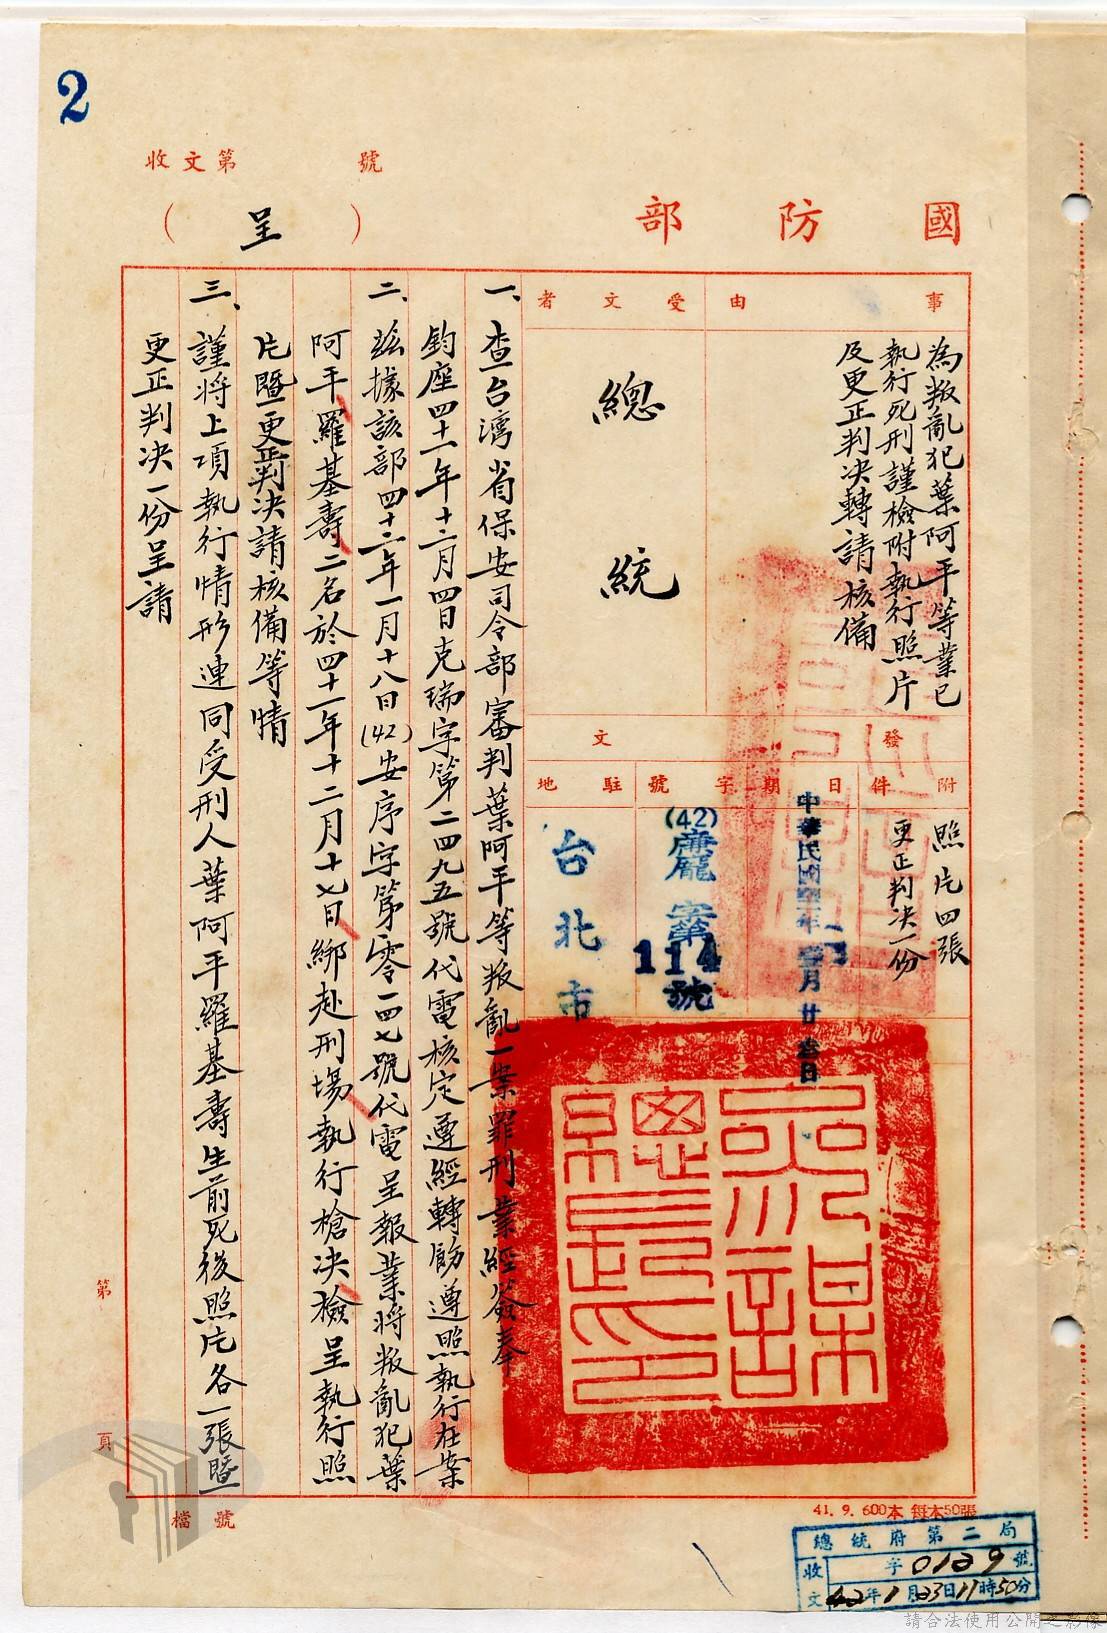 2
收文第　號
國防部
（呈）
事由
為叛亂犯葉阿平等業已
執行死刑謹檢附執行照片
及更正判決轉請核備
受文者
總統
發文
附件
照片四張
更正判決一份
日期
中華民國
字號
(42)
114
號
駐地
台北市
一、查台灣省保安司令部審判葉阿平等叛亂一案罪刑業經簽奉
鈞座四十一年十二月四日克瑞字第二四九五號代電核定遵經轉飭遵照執行在案
二、茲據該部四十二年一月十八日(42)安序字第零一四七號代電呈報業將叛亂犯葉
阿平羅基壽二名於四十一年十二月十七日綁赴刑場執行槍決檢呈執行照
片暨更正判決請核備等情
三、謹將上項執行情形連同受刑人葉阿平羅基壽生前死後照片各一張暨
更正判決一份呈請
第　頁
檔號
41. 9. 600本 每本50張
總統府第二局
收文　字0129號
42年1月23日11時50分
請合法使用公開之影像